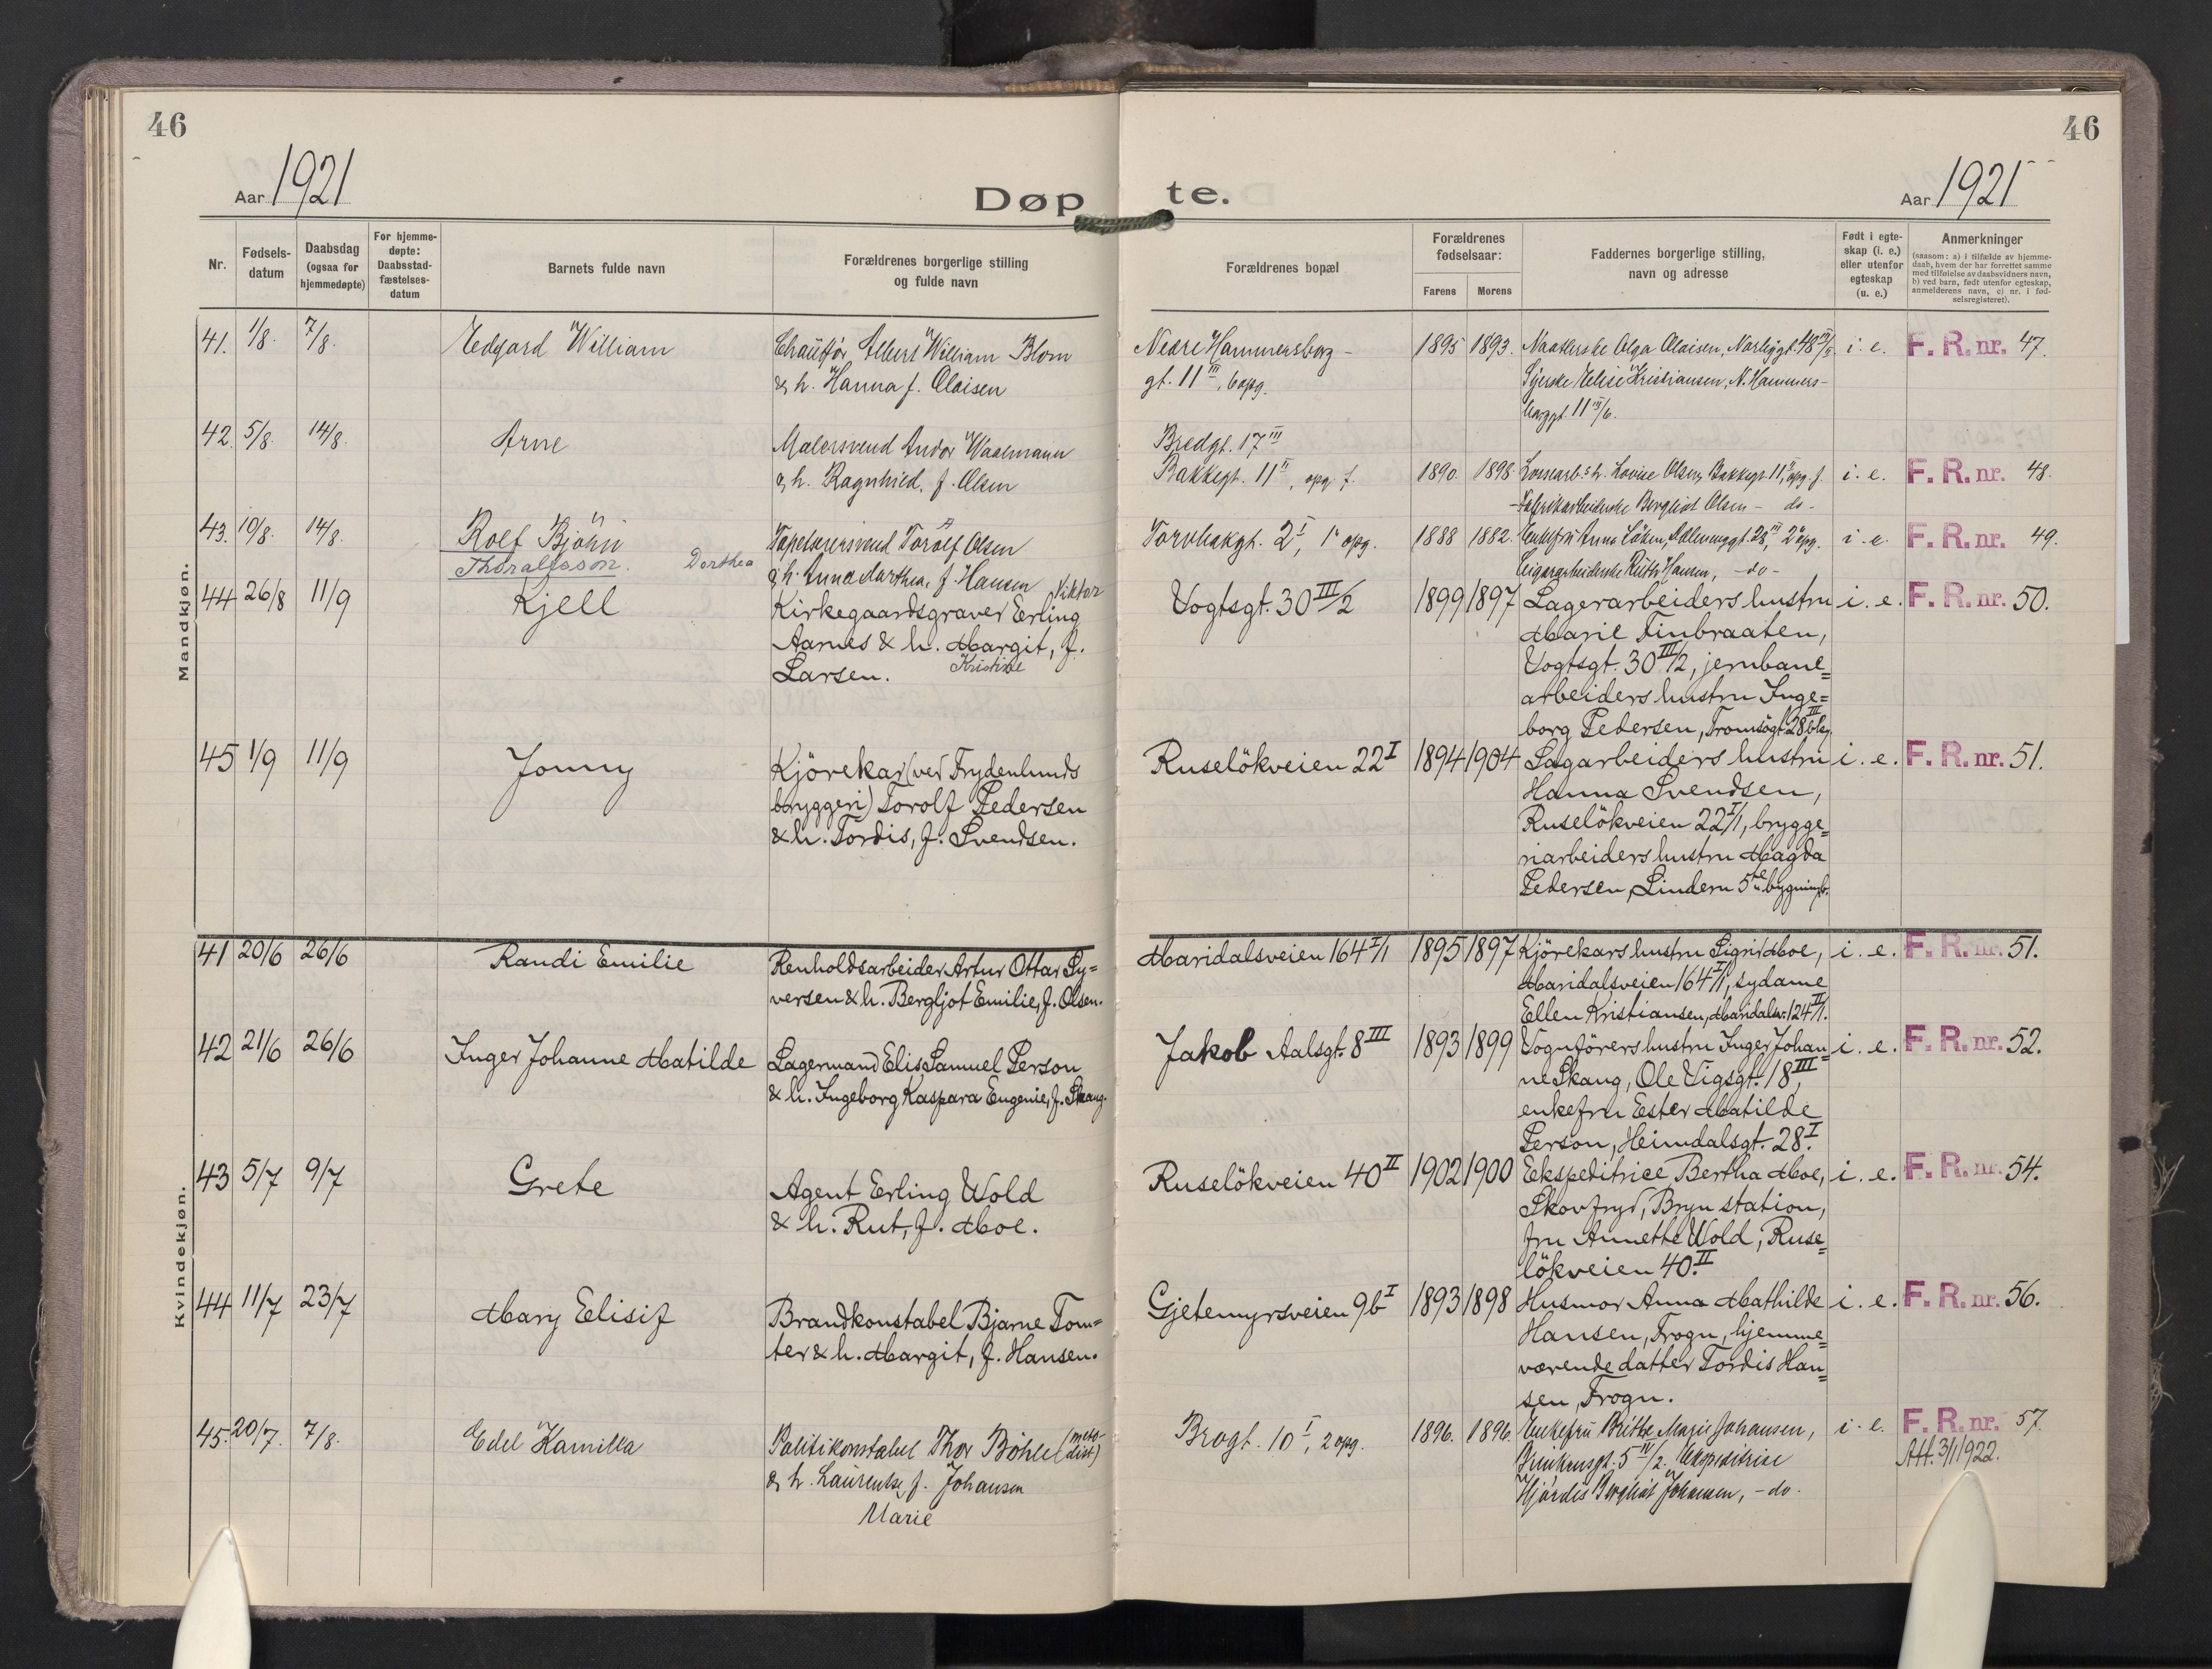 46
46
Aar 1921
Døpte.
Aar 1921
Mandkjøn.
Kvindekjøn.
Nr.
Fødsels-
datum
Daabsdag
(ogsaa for
hjemmedøpte)
For hjemme-
døpte:
Daabsstad-
fæstelses-
datum
Barnets fulde navn
Forældrenes borgerlige stilling
og fulde navn
Forældrenes bopæl
Forældrenes
fødselsaar:
Farens
Morens
Faddernes borgerlige stilling,
navn og adresse
Født i egte-
skap (i. e.)
eller utenfor
egteskap
(u. e.)
Anmerkninger
(saasom: a) i tilfælde av hjemme-
daab, hvem der har forrettet samme
med tilføielse av daabsvidners navn,
b) ved barn, født utenfor egteskap,
anmelderens navn, c) nr. i fød-
selsregisteret).
41. 1/8. 7/8. Edgard William
Chauffør Albert William Blom
& h. Hanna f. Olaisen
Nedre Hammersborg-
gt. 11 III, 6 opg.
1895 1893.
Olga Olaisen,
Syerske Elise Kristiansen, N. Hammers-
borggt. 11 III/6.
i. e. F. R. nr. 47.
42. 5/8. 14/8. Arne
Malersvend Andor Waalmann
& h. Ragnhild, f. Olsen
Bredgt. 17 III
Bakkegt. 11 II, opg. f.
1890. 1898.
h. Lovise Olsen, Bakkegt. 11 II, opg. f.
Fabrikarbeiderske Bergliot Olsen - do -
i. e. F. R. nr. 48.
43. 10/8. 14/8. Rolf Bjørn
Thoralfsson.
Dorthea
Tapetserersvend Toralf Olsen
& h. Anna Marthea, f. Hansen
Torvbakgt. 2 I, 1 opg.
1888 1882.
Enkefru Anna Løken, 28 III, 2 opg.
Cigararbeiderske Ruth Hansen, - do -
i. e. F. R. nr. 49.
44 26/8 11/9 Kjell
Viktor
Kirkegaardsgraver Erling
Aarnes & h. Margit, f.
Larsen. Kristine
Vogtsgt. 30 III/2
1899 1897
Lagerarbeiders hustru
Marie Finbraaten,
Vogtsgt. 30 III/2, jernbane=
arbeiders hustru Inge=
borg Pedersen, Tromsøgt. 28 III
i. e. F. R. nr. 50.
45 1/9 11/9 Jonny
Kjørekar (ved Frydenlunds
bryggeri) Torolf Pedersen
& h. Tordis, f. Svendsen.
Ruseløkveien 22 I
1894 1904
Lagarbeiders hustru
Hanna Svendsen,
Ruseløkveien 22 I/1, brygge=
riarbeiders hustru Magda
Pedersen, Lindern 5te bygning
i. e. F. R. nr. 51.
41 20/6 26/6 Randi Emilie
Renholdsarbeider Artur Ottar Sy=
versen & h. Bergljot Emilie, f. Olsen.
Maridalsveien 164 I/1
1895 1897
Kjørekars hustru Sigrid Moe,
Maridalsveien 164 I/1, sydame
Ellen Kristiansen, Maridalsv. 124 II/1.
i. e. F. R. nr. 51.
42 21/6 26/6 Inger Johanne Matilde
Lagermand Elis Samuel Person
& h. Ingeborg Kaspara Eugenie, f. Skaug.
Jakob Aalsgt. 8 III
1893 1899
Vognførers hustru Inger Johan=
ne Skaug, Ole Vigsgt. 18 III,
enkefru Ester Matilde
Person, Heimdalsgt. 28 I.
i. e. F. R. nr. 52.
43 5/7 9/7 Grete
Agent Erling Wold
& h. Rut, f. Moe.
Ruseløkveien 40 II
1902 1900
Ekspeditrice Bertha Moe,
Skovfryd, Bryn station,
fru Annette Wold, Ruse=
løkveien 40. II
i. e. F. R. nr. 54.
44 11/7 23/7 Mary Elisif
Brandkonstabel Bjarne Tom=
ter & h. Margit, f. Hansen.
Gjetemyrsveien 9b I
1893 1898
Husmor Anna Mathilde
Hansen, Frogn, hjemme=
værende datter Tordis Han=
sen, Frogn.
i. e. F. R. nr. 56.
45. 20/7. 7/8. Edel Kamilla
Politikonstabel Thor Bøhle (meto-
dist)
& h. Laurentse, f. Johansen
Marie
Brogt. 10 I, 2 opg.
1896. 1896.
Enkefru Britte Marie Johansen,
5 IV/2. Ekspeditrise
Hjørdis Bergliot Johansen, - do -
i. e. F. R. nr. 57.
Att. 3/1 1922.